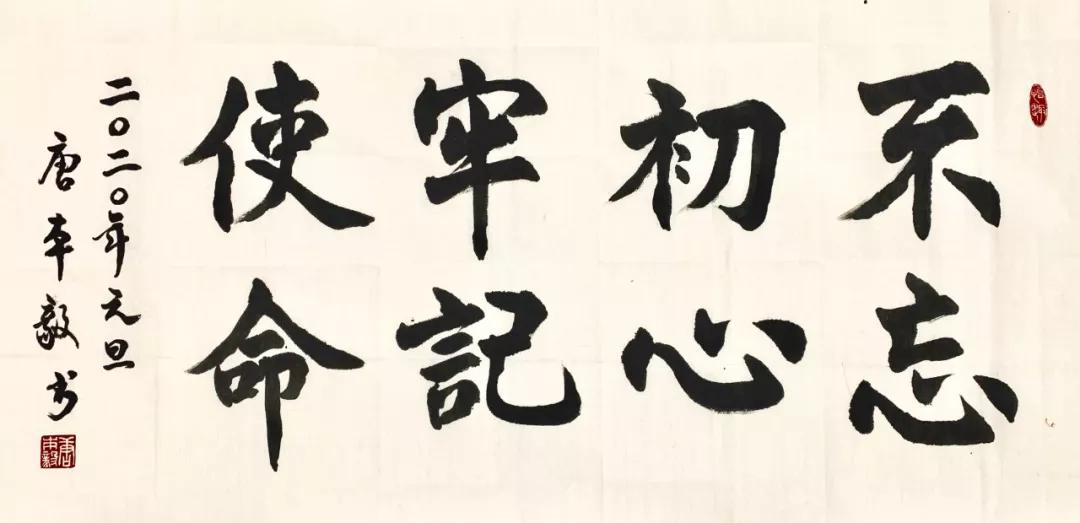 不忘
初心
牢記
使命
二〇二〇年元旦
唐本毅书
唐本毅